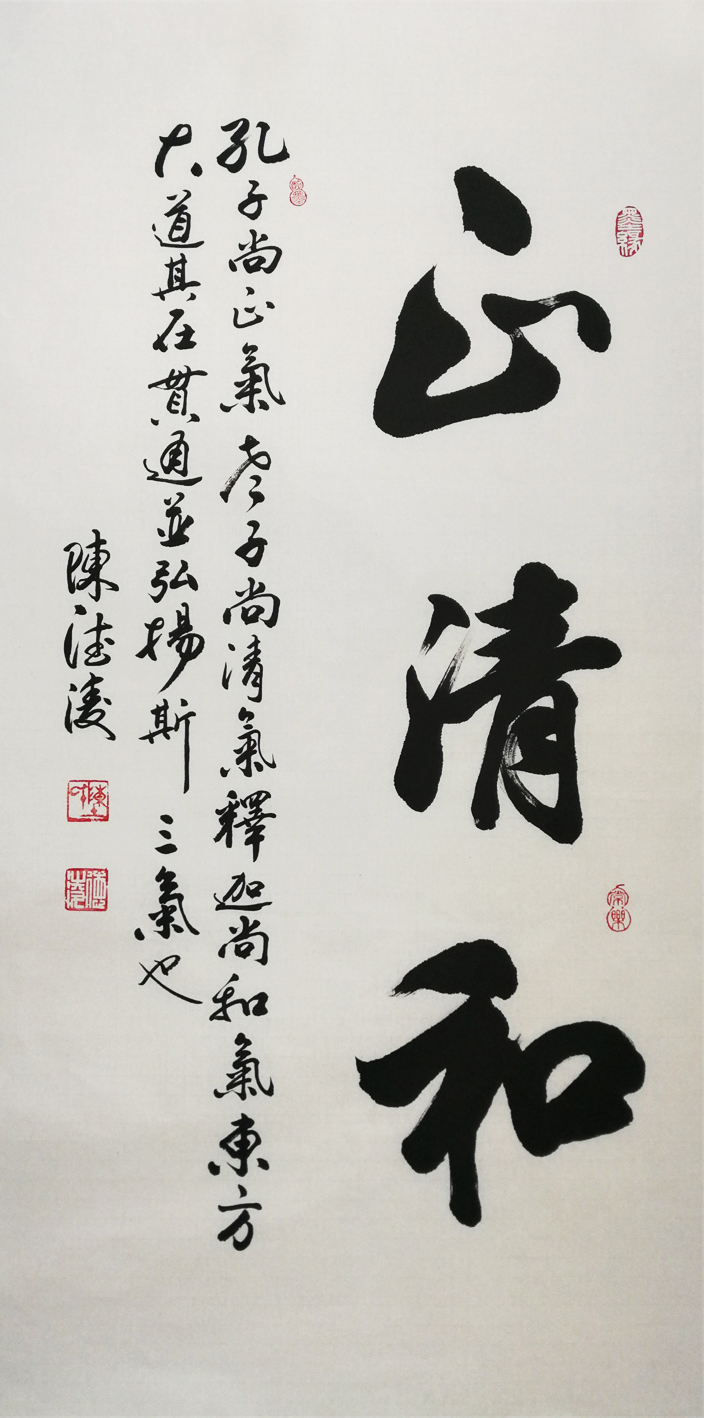 正清和
孔子尚正氣老子尚清氣釋迦尚和氣東方
大道其在貫通並弘揚斯三氣也
陳德凌